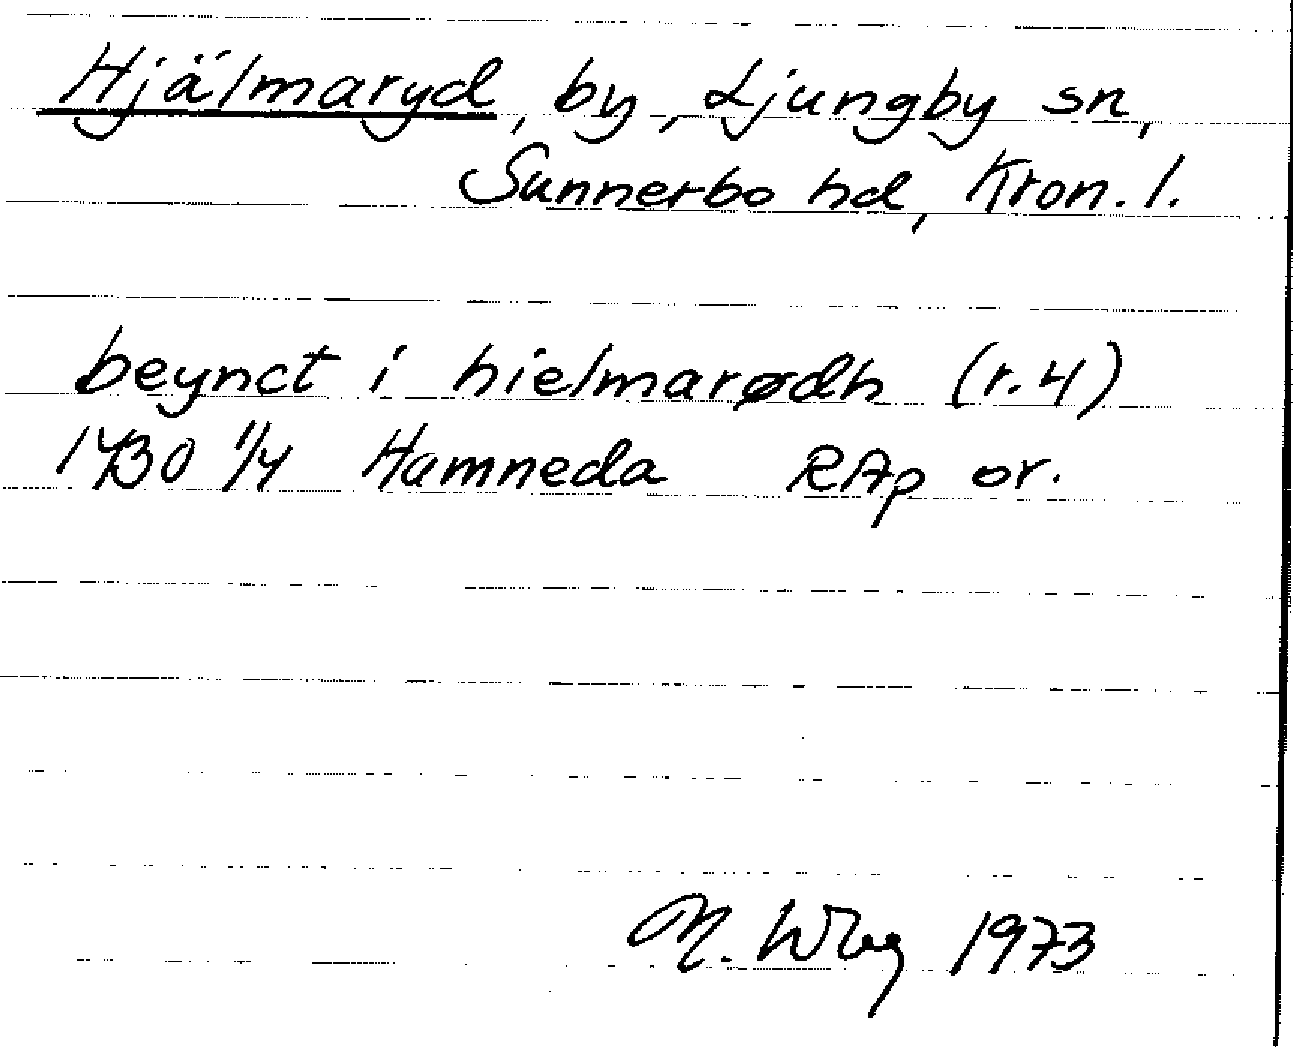 Hjälmaryd, by, Ljungby sn,
Sunnerbo hd, Kron. l.
beynct i hielmarødh (r.4)
1430 1/4 Hamneda RAp or.
M. Wbg 1973